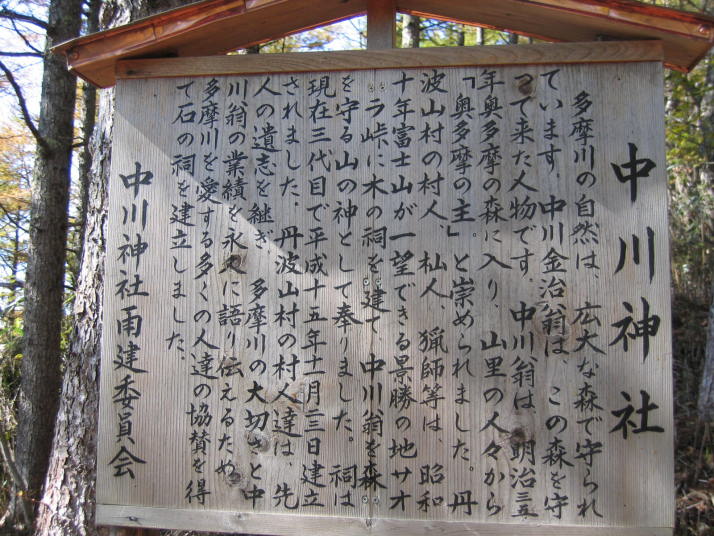 中川神社
多摩川の自然は、広大な森で守られ
ています。中川金治翁は、この森を守
って来た人物です。中川翁は、明治三五
年奥多摩の森に入り、山里の人々から
「奥多摩の主」と崇められました。丹
波山村の村人、杣人、猟師等は、昭和
十年富士山が一望できる景勝の地サオ
ラ峠に木の祠を建て、中川翁を森
を守る山の神として奉りました。祠は
現在三代目で平成十五年十一月三日建立
されました。丹波山村の村人達は、先
人の遺志を継ぎ、多摩川の大切さと中
川翁の業績を永久に語り伝えるため
多摩川を愛する多くの人達の協賛を得
て石の祠を建立しました。
中川神社再建委員会